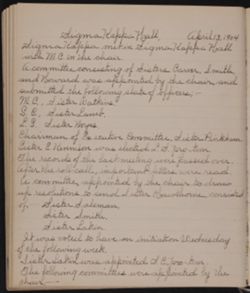 Sigma Kappa Hall, April 13, 1904
Sigma Kappa met in Sigma Kappa Hall
with M.C. in the chair.
A committee consisting of Sisters Carver, Smith,
and Howard was appointed by the chair, and
submitted the following slate of officers;-
M.C., Sister Watkins
S.C., Sister Lamb.
Sister
Chairman of Executive Committee, Sister
Sister E. Kennison was elected pro-tem.
The records of the last meeting were passed over.
After the roll-call, important letters were read.
A committee, appointed by the chair to draw
up resolutions for Sister Hawthorne, consisted
of, Sister
Sister Smith,
Sister Lakin
It was voted to have an initiation Wednesday
of the following week.
Sister Lakin was appointed pro-tem.
The following committee was appointed by the
chair:-